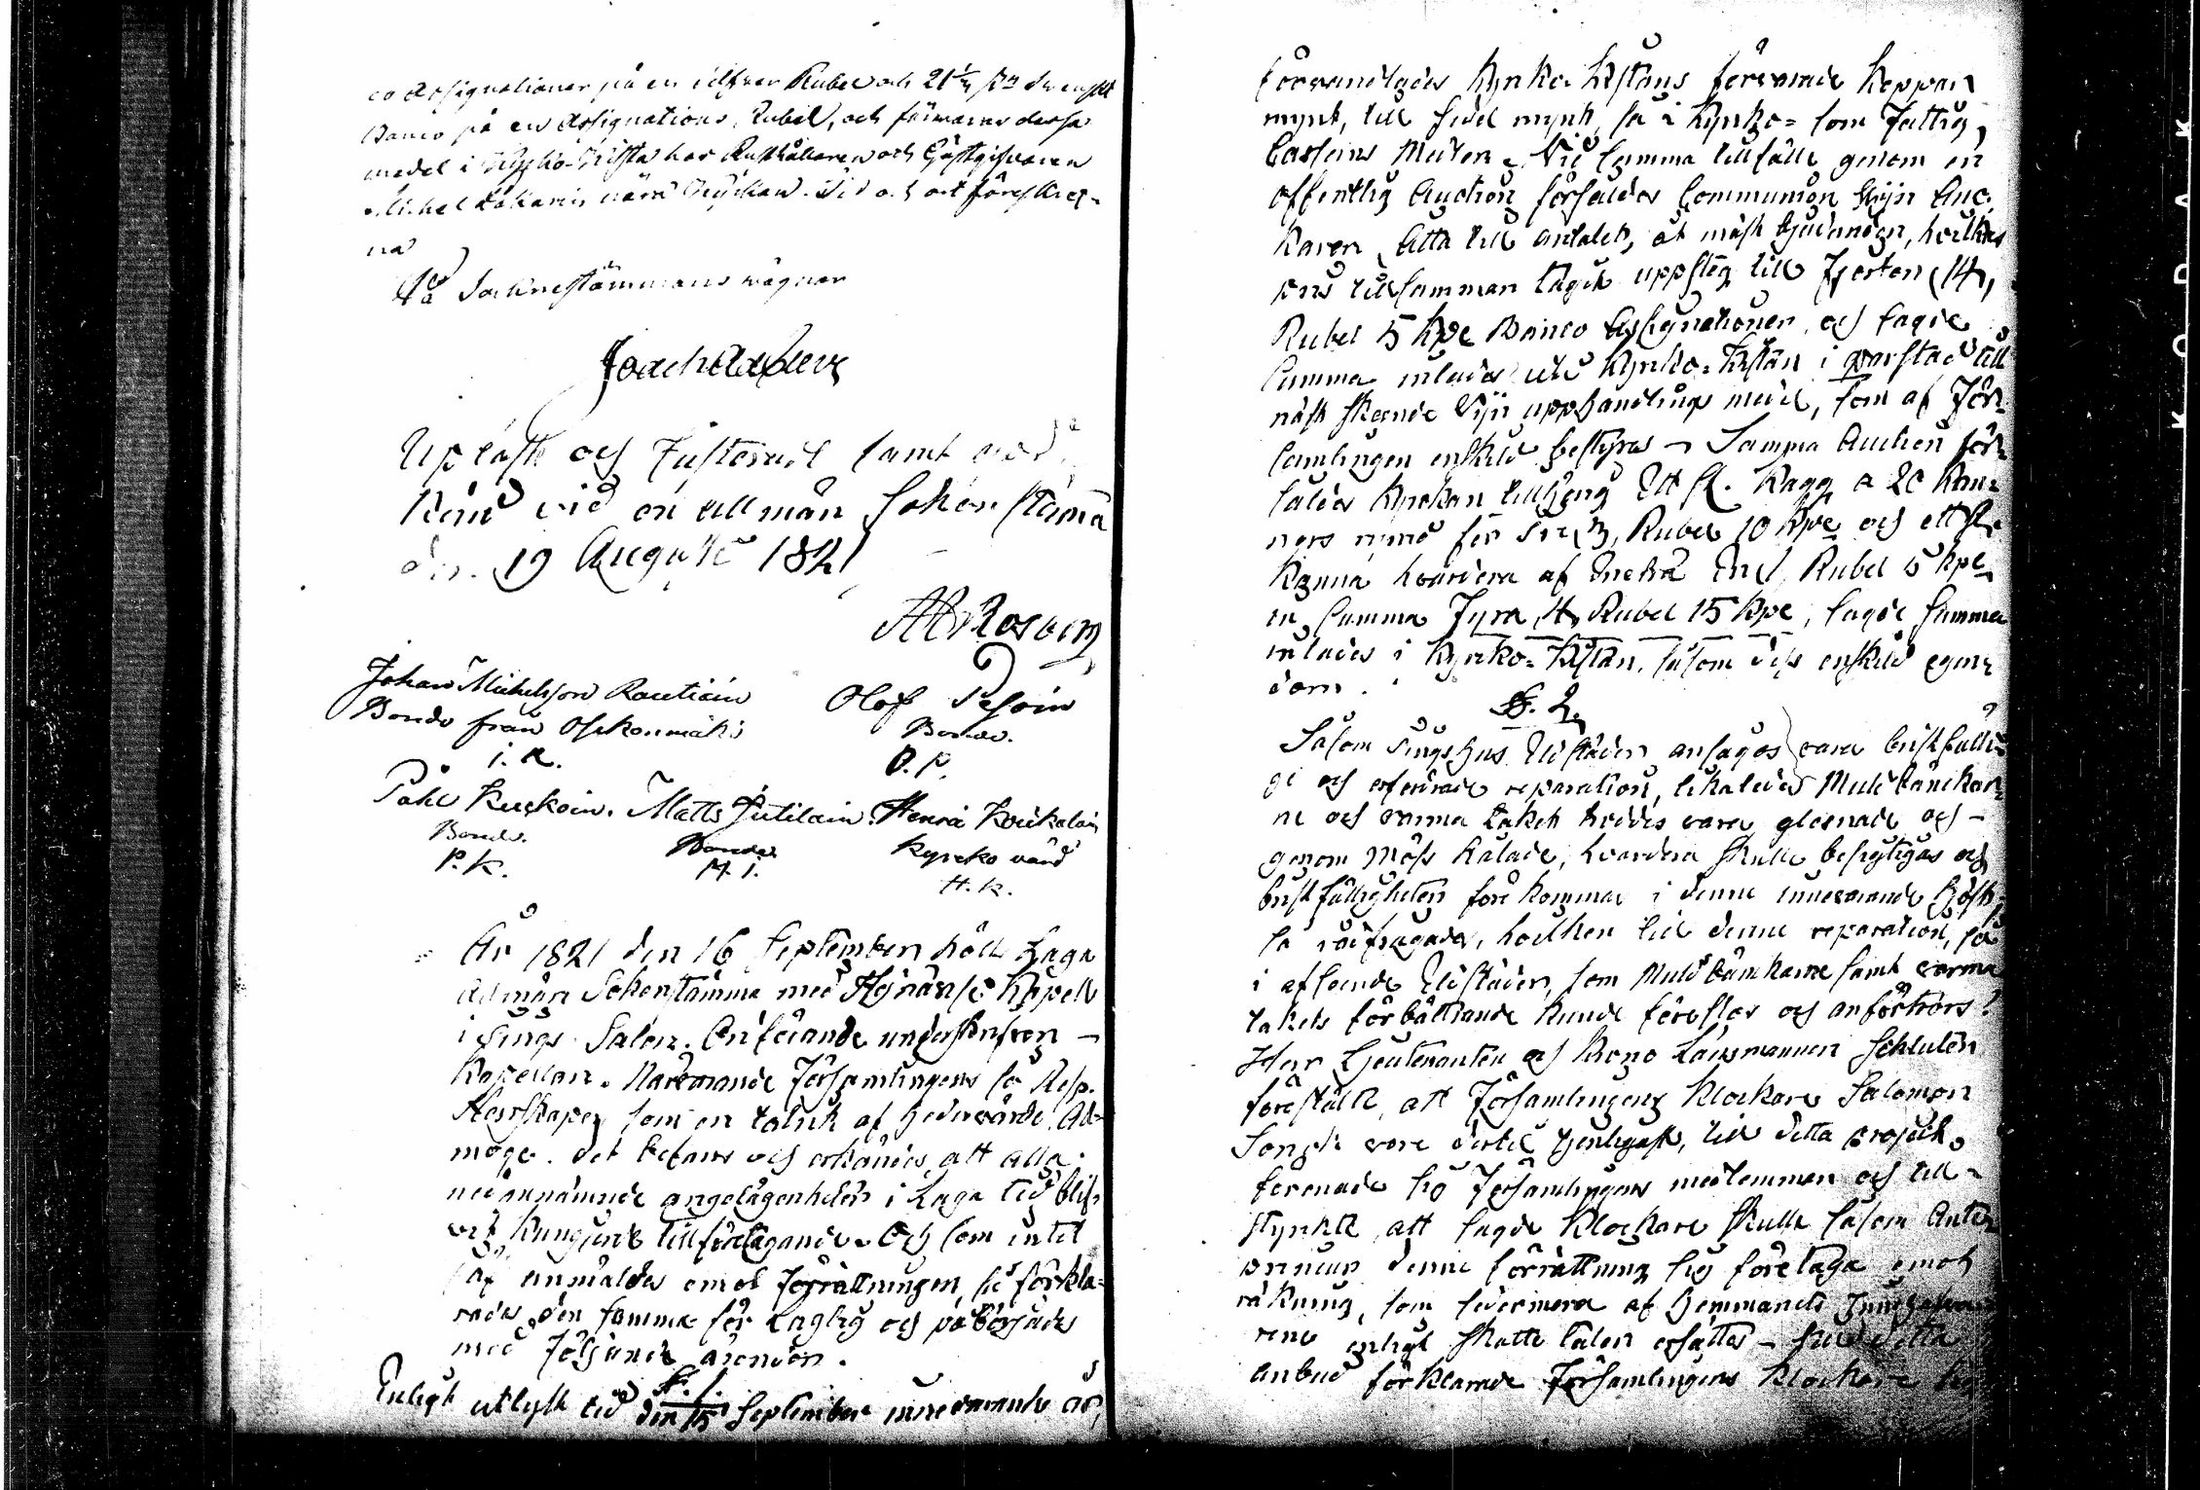 co Assignationer på en silfver Rubel och 21 1/2
Banco på en Assignations Rubel, och förvaras dessa
medel i Kyrko-Kista hos Rusthållaren och Gästgifvaren
Michel nära Kyrckan. Tid och ort föreskref-
na
På Sockne stämmans vägnar
Upläst och Justerad samt
känd vid en allmän Soken stäma
den 19 Augusti 1821
Johan Michelsson Rautiain
Bonde från
I. R.
Olof Pesoin
Bonde.
O. P.
Påhl Kuckoin. Matts Jutilain. Henric Koickalain
Bonde. Bonde Kyrcko värd
P. K. M. I. H. K.
År 1821 den 16 September hölls Laga
Allmän Sokenstämma med Hejnävesi Kapell
i Sings Salen. Anförande underskrefven
Kapellan. Närvarande Församlingens så Resp.
Herrskaper som en talrik af hedervärde All-
moge. Det befans och erkändes att alla
nedannämnde angelägenheter i Laga tid blif-
vit kungjorde tillförelagande. Och som intet
Jäf anmäldes emot förrättningen, så förkla-
rades den samma för Laglig och påbörjades
med följande ärender.
§. 1.
Enligt utlyst tid den 15 September innevarande år,
förvandlades Kyrko Kistans förvarade koppar
mynt, till sedel mynt, så i Kyrko- som Fattig
Cassans Meden. Vid samma tillfälle genom en
offentlig Auction försåldes Communion Vijn Anc-
karen, Åtta till antalet, åt mäst bjudanden, hvilkas
pris tillsamman tagit uppsteg till Fjorton (14)
Rubel 5 Kpe Banco Assignationer, och sagde
Summa inlades uti Kyrko-Kistan i qvarstad till
näst skeende Vijn upphandlings medel, som af För-
samlingen enskild bestyres - Samma Auction för-
såldes Kyrckan tillhörig Ett st. Kagg a 20 Kan-
nors rymd för Tre, 3, Rubel 10 Kpe och ett st.
Kanna hvardera af En, 1, Rubel 5 Kpe
en Summa Fyra, 4, Rubel 15 Kpe, sagde Summa
inlades i Kyrko-Kistan, såsom dess enskild egen-
dom.
§. 2.
Såsom Sings hus Eldstäder ansågos vara bristfälli-
ge och erfordrade reparation, likaledes Muld bänkar-
ne och varma taket hvilkes vara glesnade och
genom Måss kalade, hvardera skulle besigtigas och
bristfälligheten förekomma i denne innevarande höst,
så rådfrågades, hvilken till denne reparation, så
i afseende Eldstäder, som Muld bänkarne samt varma
takets förbättrande kunde föreslås och anförtros?
Herr Lieutenanten och Krono Länsmannen Schulten
föreställte, att Församlingens Klockare Salomon
vore dertil tjenligast, till detta project
förenade sig Församlingens medlemmar och till-
styrkte, att sagde Klockare skulle såsom Entre
preneur denne förrättning sig företaga emot
räkning, som sedermera af Hemmanets Innehafva-
rene enligt Skatte talen ersättes - Till detta
anbud förklarade Församlingens Klockare sig